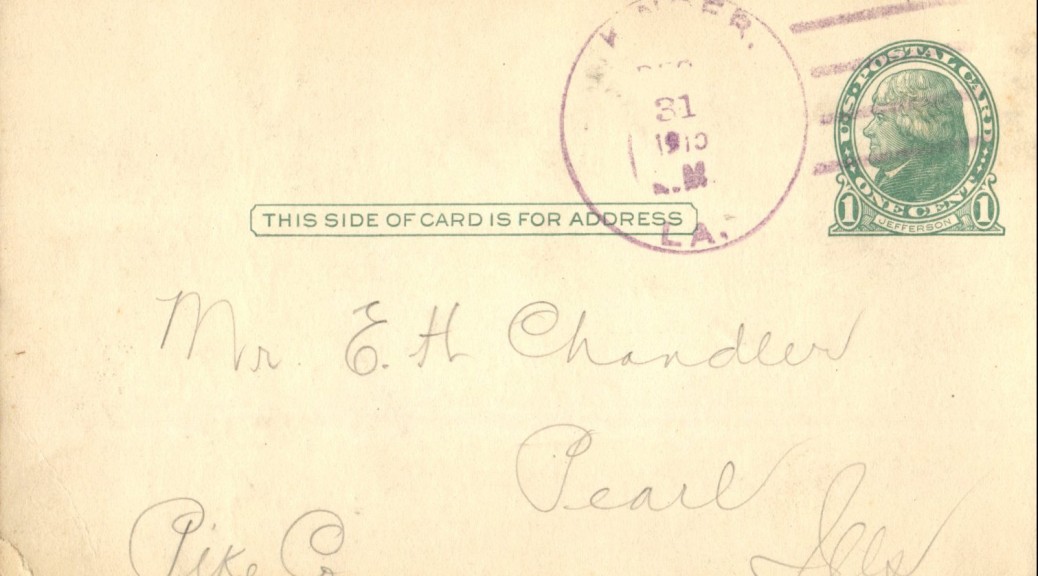 KINDER,
DEC
31
1910
.M.
LA.
U.S. POSTAL CARD
ONE CENT
1 JEFFERSON 1
THIS SIDE OF CARD IS FOR ADDRESS
Mr. E. H Chandler
Pearl
Pike Co Ills